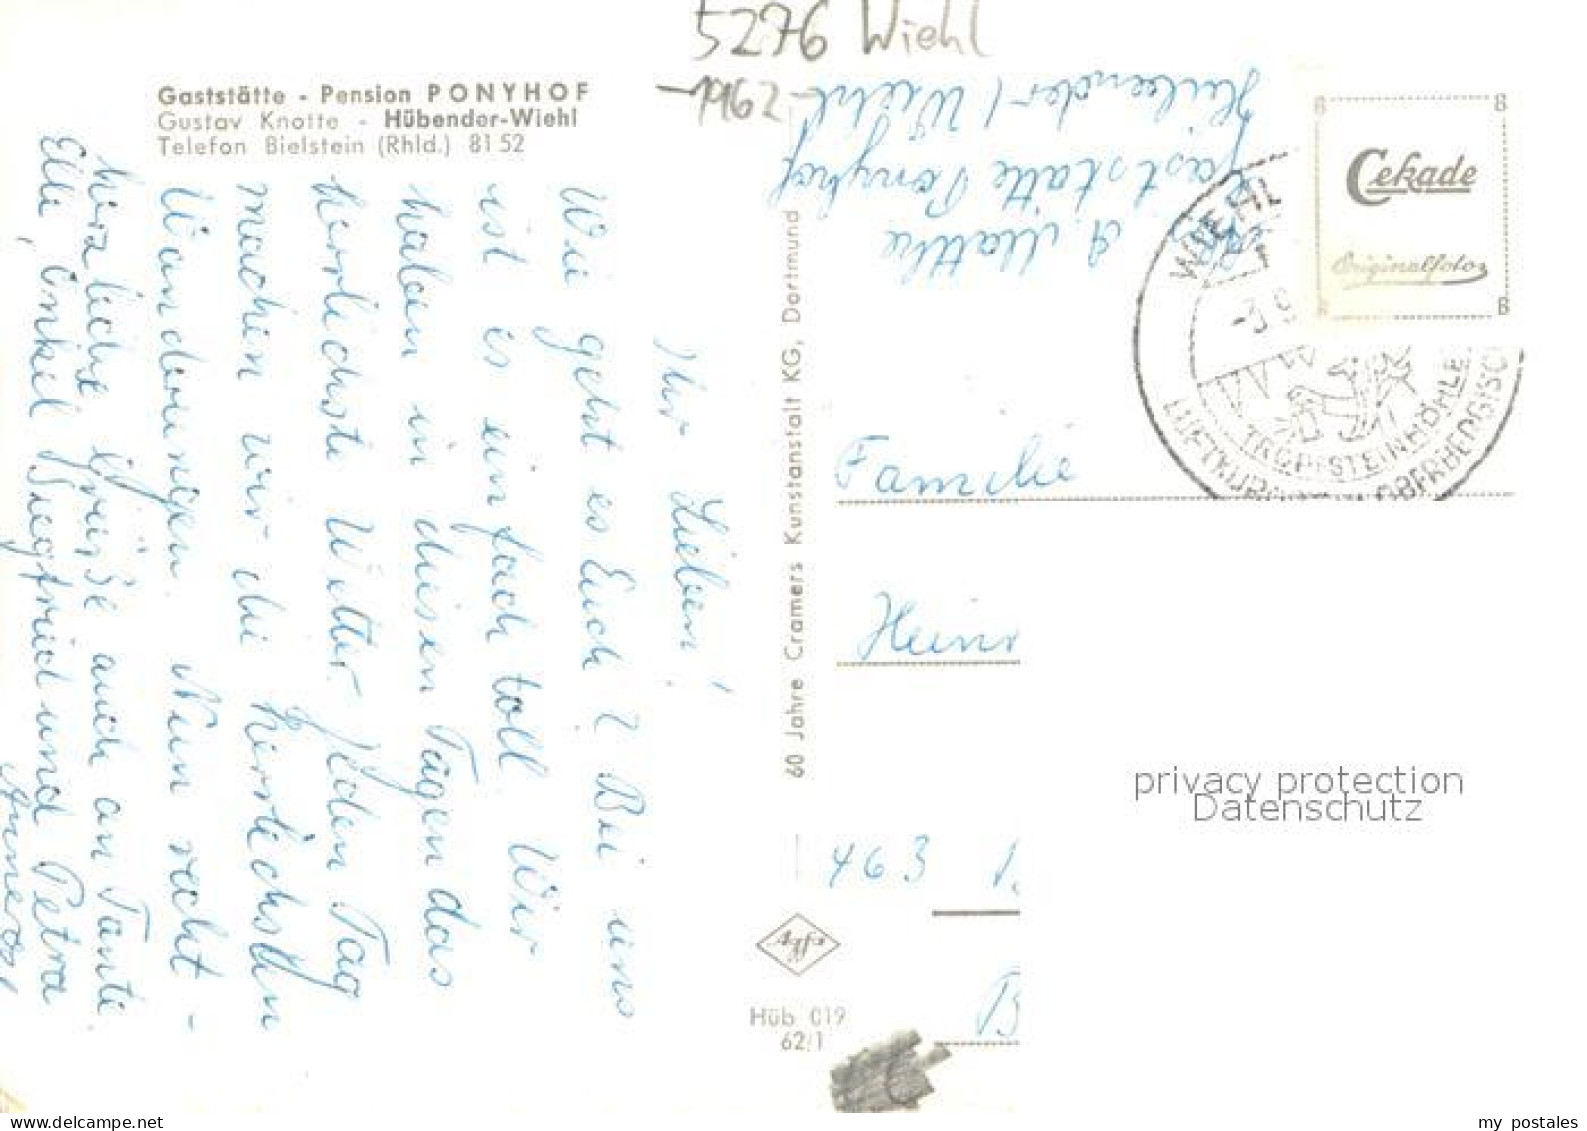 5276 Wiehl
1962
Gaststätte - Pension PONYHOF
Gustav Knotte - Hübender-Wiehl
Telefon Bielstein (Rhld.) 81 52
Ihr Lieben!
Wie geht es Euch? Bei uns
ist es einfach toll. Wir
haben in diesen Tagen das
herrlichste Wetter. Jeden Tag
machen wir die herrlichsten
Wanderungen. Nun recht -
herzliche Grüße auch an Tante
Elli, Onkel Siegfried und Petra
60 Jahre Cramers Kunstanstalt KG, Dortmund
A. Matthe
Gaststätte Ponyhof
Hübender / Wiehl
Cekade
Originalfoto
WIEHL
TROPFSTEINHÖHLE
LUFTKURORT OBERBERGISC
Familie
Heinr
463
B
Agfa
Hüb 019
62/1
privacy protection
Datenschutz
my postales